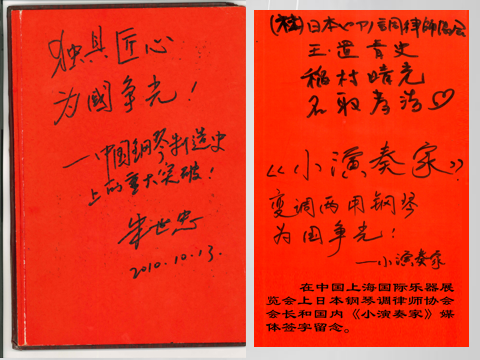 独具匠心
为國争光！
—中國钢琴制造史
上的重大突破！
朱世忠
2010.10.13.
(社)日本ピアノ調律師協会
王·道青史
稲村晴光
名取孝浩♡
《小演奏家》
变调两用钢琴
为国争光！
—小演奏家
在中国上海国际乐器展
览会上日本钢琴调律师协会
会长和国内《小演奏家》媒
体签字留念。